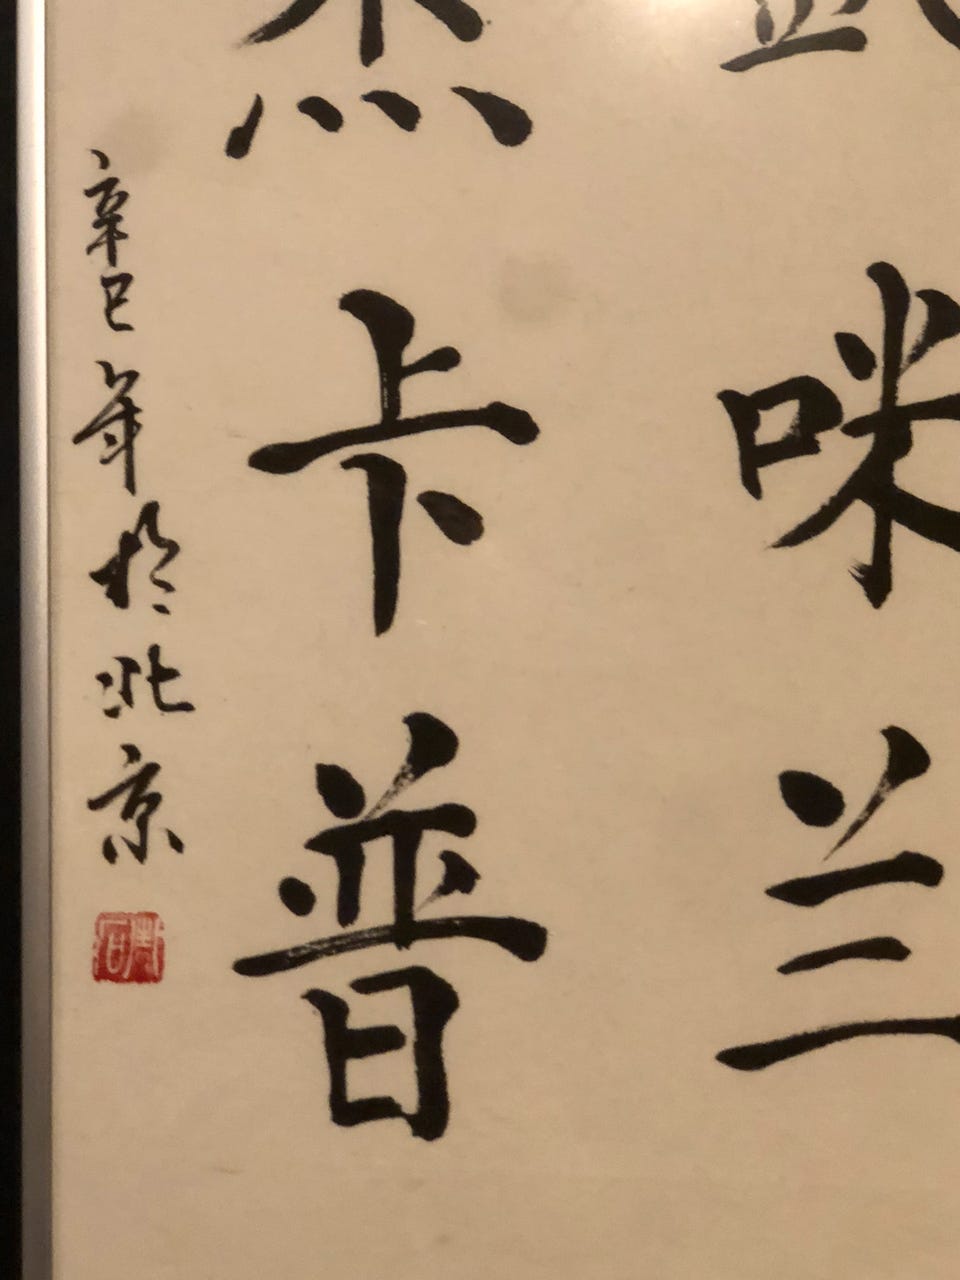 咪兰
杰卡普
辛巳年於北京